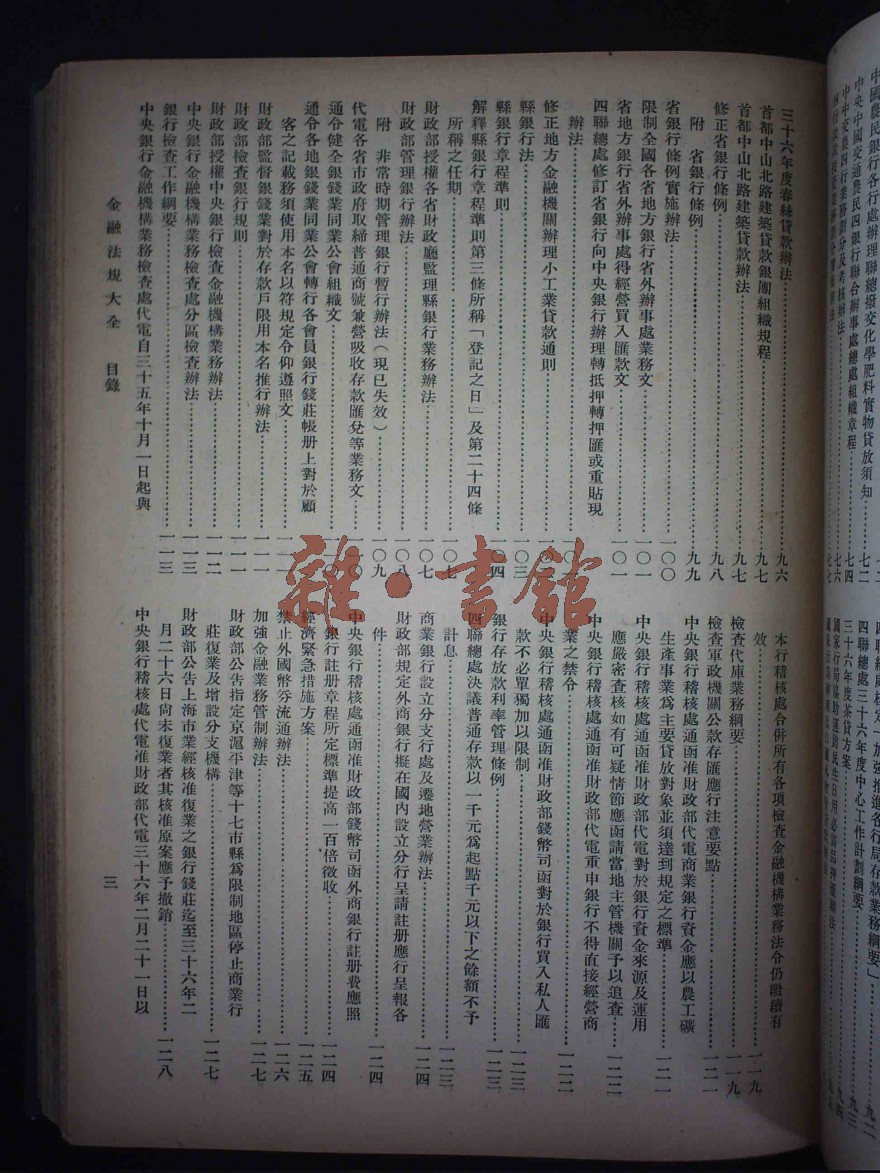 三十六年度春絲貸款辦法……九六
首都中山北路建築貸款銀團組織規程……九七
首都中山北路建築貸款辦法……九七
修正省銀行條例……九八
附 省銀行條例……九九
省銀行條例實施辦法……一〇〇
限制全國各省地方銀行省外辦事處業務文……一〇一
省地方銀行省外辦事處得經營買入匯款文……一〇一
四聯總處修訂省銀行向中央銀行辦理轉抵押轉押匯或重貼現
辦法……
修正地方金融機關辦理小工業貸款通則……
縣銀行法……一〇三
縣銀行章程準則……一〇四
解釋縣銀行章程準則第三條所稱「登記之日」及第二十四條
所稱之任期……一〇七
財政部授權各省財政廳監理縣銀行業務辦法……一〇七
財政部管理銀行辦法……一〇八
附 非常時期管理銀行暫行辦法(現已失效)……一〇九
代電各省市政府取締普通商號兼營吸收存款匯兌等業務文……
通令健全銀錢業同業公會組織文……
通令各地銀錢業同業公會轉行各會員銀行錢莊帳册上對於顧
客之記載務須使用本名以符規定令仰遵照文……
財政部監督銀錢業對於存款戶限用本名推行辦法……一一一
財政部檢查銀行規則……一一一
財政部授權中央銀行檢查金融機構業務辦法……一一二
中央銀行金融機構業務檢查處分區檢查辦法……一一三
銀行檢查工作綱要……一一三
中央銀行金融機構業務檢查處代電自三十五年十月一日起與
本行稽核處合併所有各項檢查金融機構業務法令仍繼續有
效……一一九
檢查代庫業務綱要……一一九
檢查軍政機關公款存匯應行注意要點……一二一
中央銀行稽核處通函准財政部代電商業銀行資金應以農工礦
生產事業爲主要貸放對象並須達到規定之標準……一二一
中央銀行稽核處通函准財政部代電對於銀行資金來源及運用
應嚴密查核如有可疑情節應函請當地主管機關予以追查……一二二
中央銀行稽核處通函准財政部代電重申銀行不得直接經營商
業之禁令……一二二
中央銀行稽核處通函准財政部錢幣司函對於銀行買入私人匯
款不必單獨加以限制……一二三
銀行存放款利率管理條例……一二三
四聯總處決議普通存款以一千元爲起點千元以下之餘額不予
計息……一二三
商業銀行設立分支行處及遷地營業辦法……一二四
財政部規定外商銀行擬在國內設立分行呈請註册應行呈報各
件……一二四
中央銀行稽核處通函准財政部錢幣司函外商銀行註册費應照
銀行註册章程所定標準提高一百倍徵收……一二四
經濟緊急措施方案……一二五
禁止外國幣券流通辦法……一二六
加強金融業務管制辦法……一二七
財政部公告指定京滬平津等十七市縣爲限制地區停止商業行
莊復業及增設分支機構……一二七
財政部公告上海市業經核准復業之銀行錢莊迄至三十六年二
月二十六日尚未復業者其核准原案應予撤銷……一二八
中央銀行稽核處代電准財政部代電三十六年二月二十一日以
金融法規大全 目錄
三
雜·書館
中國農民銀行各行處辦理聯總撥交化學肥料實物貸放須知……七二
中央中國交通農民四銀行聯合辦事總處組織章程……七四
中中交農四行業務劃分及考核辦法……七六
四聯總處三十六年度中心工作計劃綱要……
三十六年度茶貸方案……